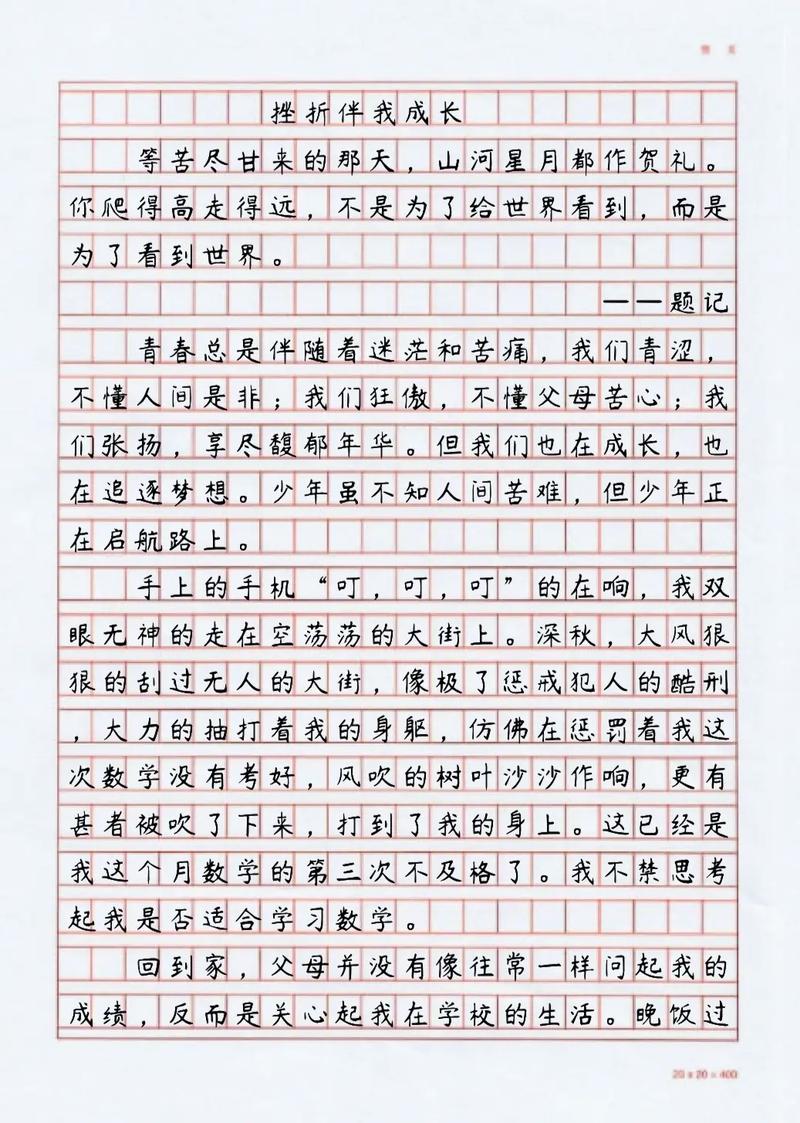 挫折伴我成长
等苦尽甘来的那天，山河星月都作贺礼。
你爬得高走得远，不是为了给世界看到，而是
为了看到世界。
——题记
青春总是伴随着迷茫和苦痛，我们青涩，
不懂人间是非；我们狂傲，不懂父母苦心；我
们张扬，享尽馥郁年华。但我们也在成长，也
在追逐梦想。少年虽不知人间苦难，但少年正
在启航路上。
手上的手机“叮，叮，叮”的在响，我双
眼无神的走在空荡荡的大街上。深秋，大风狠
狠的刮过无人的大街，像极了惩戒犯人的酷刑
，大力的抽打着我的身躯，仿佛在惩罚着我这
次数学没有考好，风吹的树叶沙沙作响，更有
甚者被吹了下来，打到了我的身上。这已经是
我这个月数学的第三次不及格了。我不禁思考
起我是否适合学习数学。
回到家，父母并没有像往常一样问起我的
成绩，反而是关心起我在学校的生活。晚饭过
20×20=400